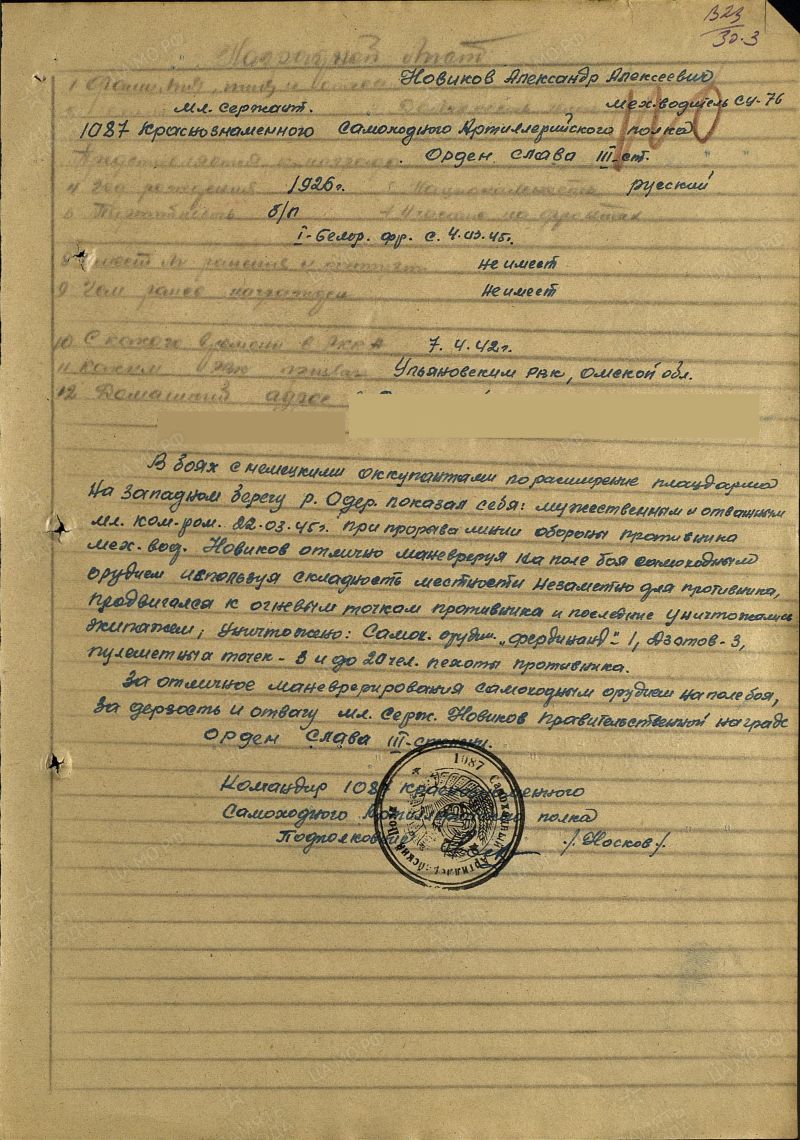 В23
30-3
Наградной лист
1 Фамилия, имя и отчество Новиков Александр Алексеевич
мл. сержант. Должность мех.водитель СУ-76
1087 Краснознаменного Самоходного Артиллерийского полка
Представляется к награде Орден Слава III ст.
4 Год рождения 1926г. Национальность русский
6 Партийность б/п
I-белор. фр. с. 4.03.45г.
не имеет
9 Чем ранее награжден не имеет
10 С какого времени в РККА 7.4.42г.
11 Каким РВК призван Ульяновским РВК, Омской обл.
12 Домашний адрес
В боях с немецкими оккупантами по расширение плацдарма
на западном берегу р. Одер. показал себя: мужественным и отважным
мл. ком-ром. 22.03.45г. при прорыва линии обороны противника
мех. вод. Новиков отлично маневреруя на поле боя самоходным
орудием используя складность местности незаметно для противника,
продвигался к огневым точкам противника и последние уничтожались
экипажем, уничтожено: Самох. орудие „Фердинанд"- 1, Дзотов - 3,
пулеметных точек - 3 и до 20 чел. пехоты противника.
За отличное маневрерирования самоходным орудием на поле боя,
за дерзость и отвагу мл. серж. Новиков правительственной награде
Орден Слава III-степени.
Командир 1087 Краснознаменного
Самоходного Артиллерийского полка
Подполковник /Носков/.
1087 Самоходный Артиллерийский Полк